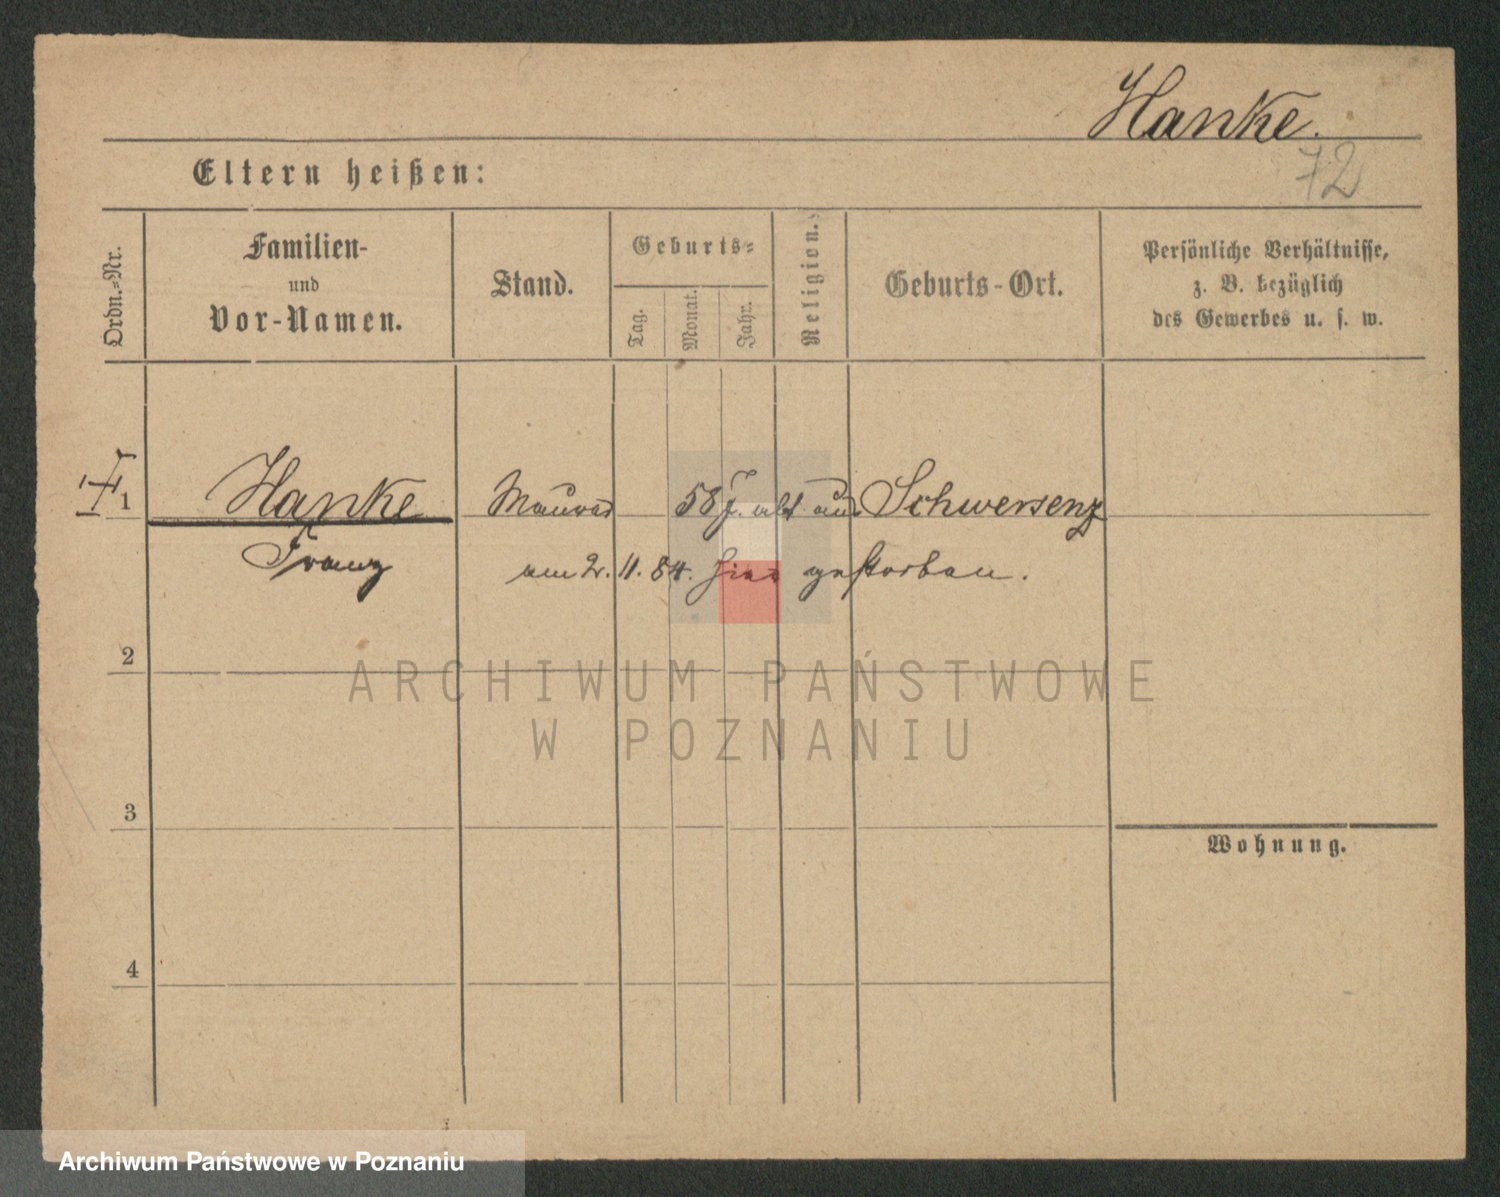 Hanke.
72
Eltern heißen:
Ordn.-Nr.
Familien-
und
Vor-Namen.
Stand.
Geburts-
Tag.
Monat.
Jahr.
Religion.
Geburts-Ort.
Persönliche Verhältnisse,
z. B. bezüglich
des Gewerbes u. s. w.
1
Hanke Maurer 58 J. alt aus Schwersenz
Franz am 2. 11. 84. hier gestorben.
2
ARCHIWUM PAŃSTWOWE
W POZNANIU
3
Wohnung.
4
Archiwum Państwowe w Poznaniu